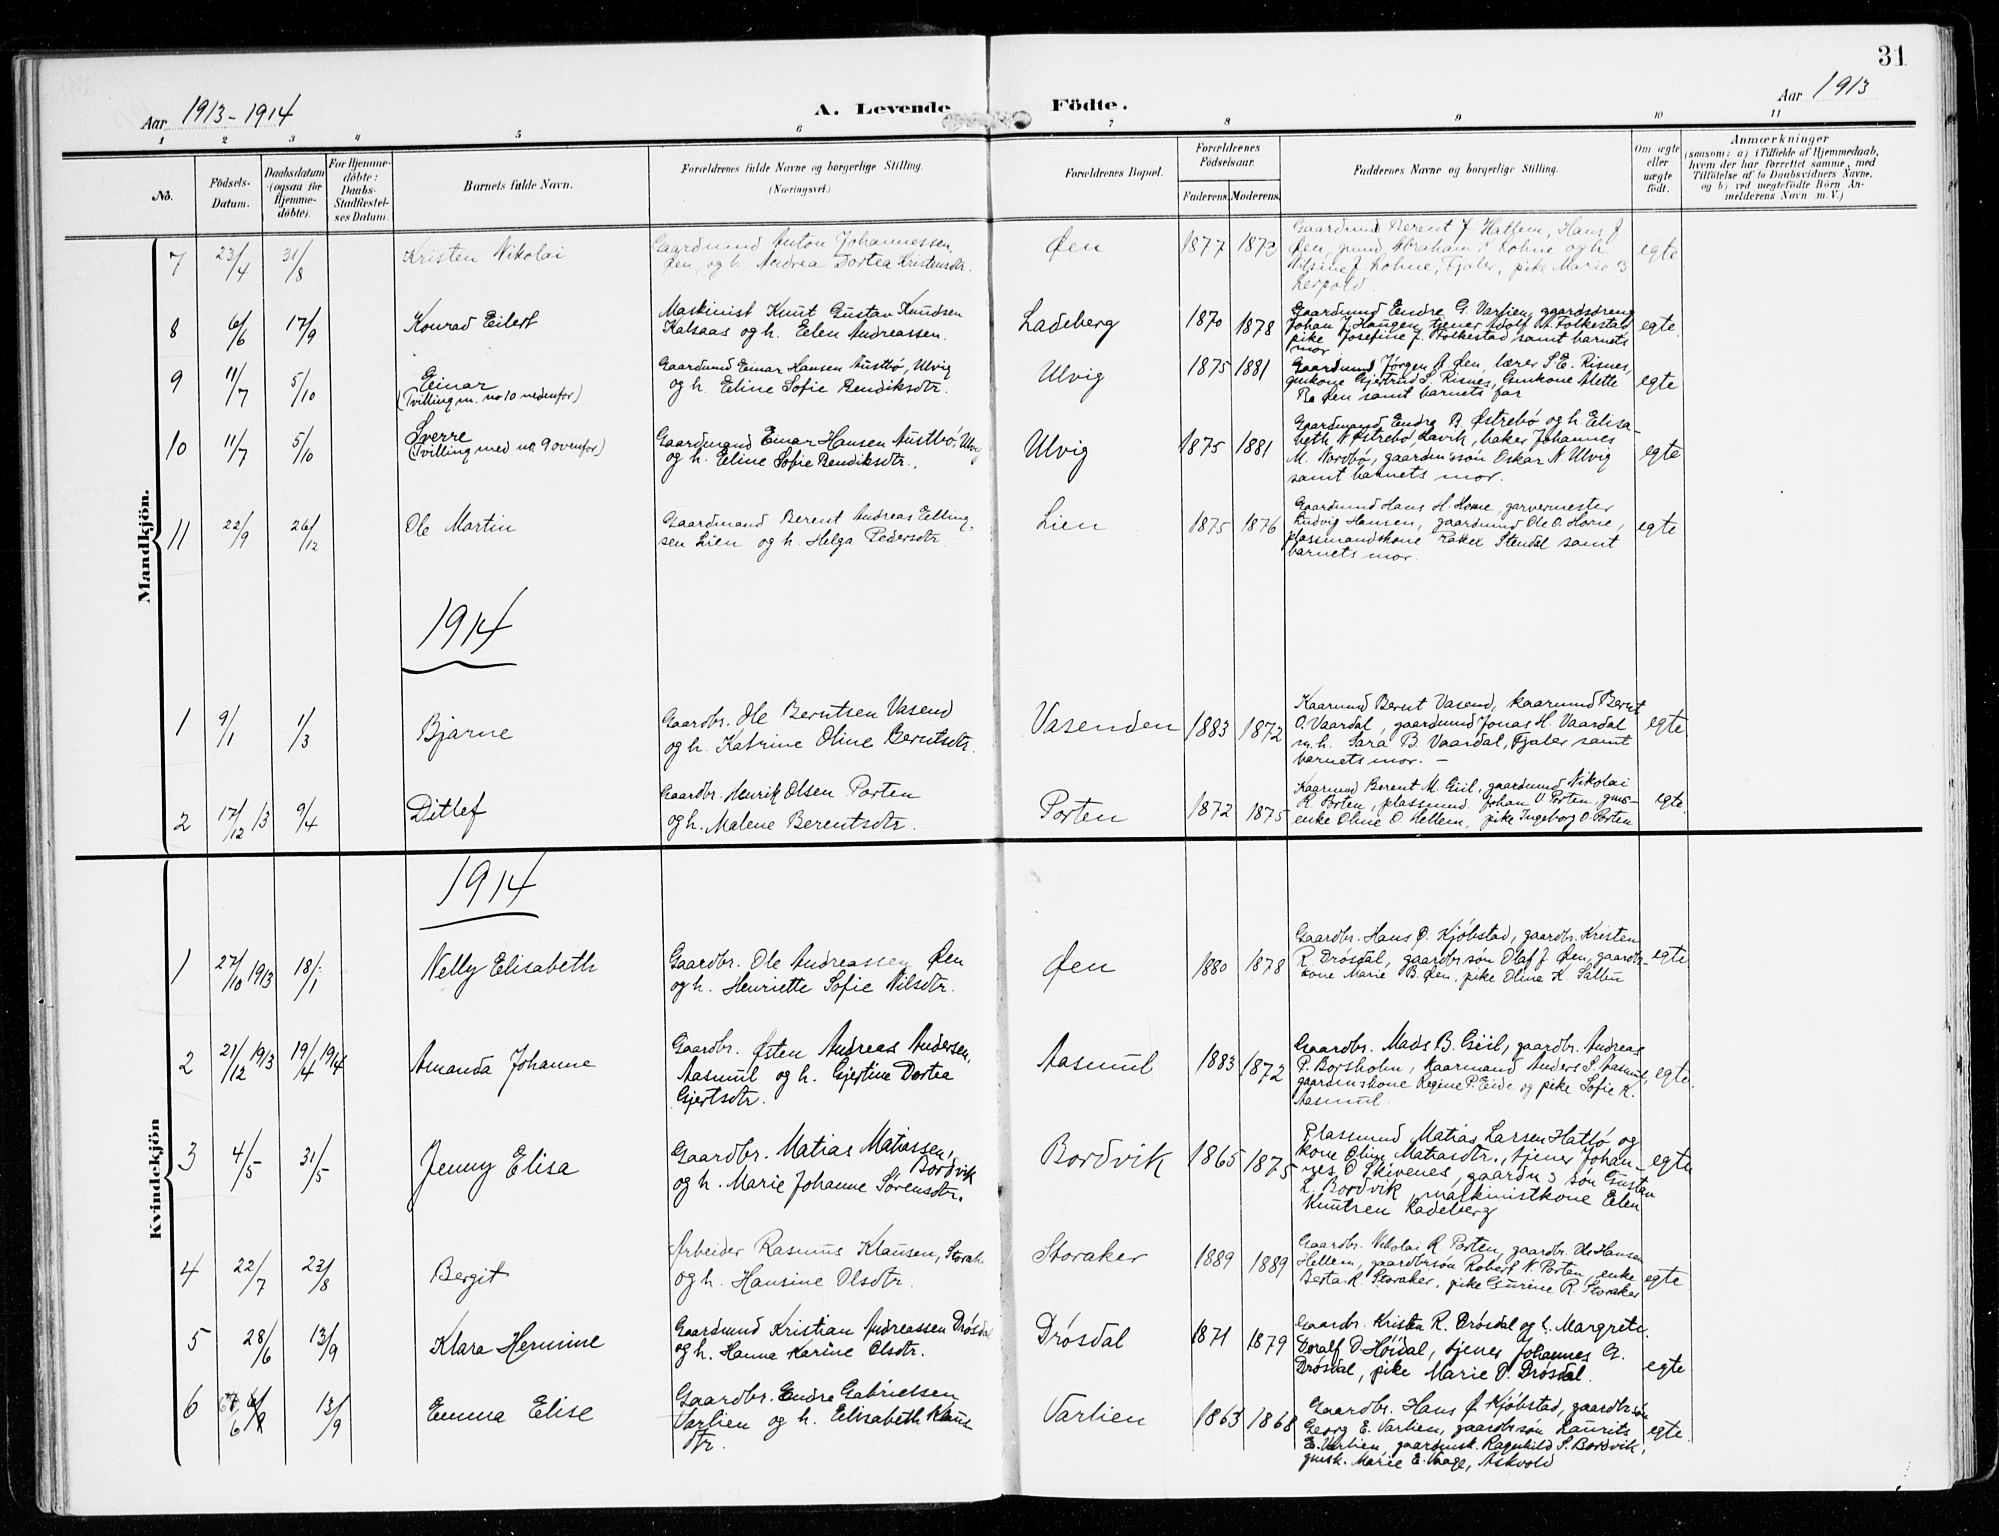 31
Aar 1913-1914
A. Levende Födte.
Aar 1913
1 2 3 4 5 6 7 8 9 10 11
No.
Födsels-Datum.
Daabsdatum (ogsaa for Hjemme-döbte).
For Hjemme-döbte: Daabs-Stadfæstel-ses Datum.
Barnets fulde Navn.
Forældrenes fulde Navne og borgerlige Stilling. (Næringsvei.)
Forældrenes Bopæl.
Forældrenes Födselsaar.
Faderens. Moderens.
Faddernes Navne og borgerlige Stilling.
Om ægte eller uægte födt.
Anmærkninger
(saasom: a) i Tilfælde af Hjemmedaab,
hvem der har forrettet samme, med
Tilföielse af to Daabsvidners Navne,
og b) ved uægtefödte Börn An-
melderens Navn m. V.)
Mandkjön.
7 23/4 31/8 Kristen Nikolai
Gaardmund Anton Johannessen
Øen, og h. Andrea Dortea Kristensdtr.
Øen 1877 1870
Gaardmund Berent J. Hatlem, Hans J.
Øen, gmnd. Abraham Lohne og h.
Nilsine J. Lohne, Fjaler, pike Marie B
Lerpold.
egte
8 6/6 17/9 Konrad Eilert
Maskinist Knut Gustav Knudsen
Kalsaas og h. Elen Andreassen.
Ladeberg 1870 1878
Gaardmund Endre G. Varlien, gaardsdreng
Johan J. Haugen, tjener Adolf A. Folkestad
pike Josefine J. Folkestad samt barnets
mor
egte.
9 11/7 5/10 Einar
(Tvilling m. no 10 nedenfor)
Gaardmund Einar Hansen Austbø, Ulvig
og h. Eline Sofie Bendiksdtr.
Ulvig 1875 1881
Gaardmund Jørgen A Øen, lærer S. E. Risnes,
gmkone Gjertrud S. Risnes, Gmkone Mette
Bo Øen samt barnets far
egte
10 11/7 5/10 Sverre
(Tvilling med no. 9 ovenfor)
Gaardmand Einar Hansen Austbö, Ulvig
og h. Eline Sofie Bendiksdtr.
Ulvig 1875 1881
Gaardmand Endre B. Østrebö og h Elisa-
beth N. Østrebö, Lavik, baker Johannes
M. Nordbö, gaardmssön Oskar N. Ulvig
samt barnets mor.
egte
11 22/9 26/12 Ole Martin
Gaardmand Berent Andreas Elling-
sen Lien og h. Helga Pedersdtr.
Lien 1875 1876
Gaardmund Hans H. Horne, garvermester
Ludvig Hansen, gaardmund Ole O. Horne,
plassmandskone Rakel Stendal samt
barnets mor.
egte
1914
1 9/1 1/3 Bjarne
Gaardbr. Ole Berntsen Vasend
og h. Katrine Oline Berntsdtr.
Vasenden 1883 1872
Kaarmund Bernt Vasend, kaarmund Bernt
O. Vaardal, gaardmund Jonas H. Vaardal
m. h. Sara B. Vaardal, Fjaler samt
barnets mor. –
egte
2 17/12 13 9/4 Ditlef
Gaardbr. Henrik Olsen Porten
og h. Malene Berentsdtr.
Porten 1872 1875
Kaarmund Berent M. Eiil, gaardmund Nikolai
R. Porten, plassmund. Johan O Porten, gms-
enke Oline O. Hellem, pike Ingeborg O. Porten
egte.
Kvindekjön
1914
1 27/10 1913 18/1 Nelly Elisabeth
Gaardbr. Ole Andreassen Øen
og h. Henriette Sofie Nilsdtr.
Øen 1880 1878
Gaardbr. Hans Ø. Kjöbstad, gaardbr. Kristen
R Drösdal, gaardbrsön Olaf J. Øen, gaardbr-
kone Marie B. Øen, pike Oline K. Sættem
egte
2 21/12 1913 19/4 1914 Amanda Johanne
Gaardbr. Østen Andreas Andersen
Aasmul og h. Gjertine Dortea
Gjertsdtr.
Aasmul 1883 1872
Gaardbr. Mads B. Eiil, gaardbr. Andreas
P. Borsholm, kaarmand Anders S. Aasmul,
gaardmskone Regine P. Eide og pike Sofie K.
Aasmul.
egte.
3 4/5 31/5 Jenny Elisa
Gaardbr. Matias Matiassen,
Bordvik
og h. Marie Johanne Sörensdtr.
Bordvik 1865 1875
Plassmund Matias Larsen Hatlö og
kone Oline Matiasdtr., tjener Johan-
nes O Skivenes, gaardmssön Gustav
L. Bordvik, maskinistkone Elen
Knutsen Ladeberg
egte
4 22/7 23/8 Bergit
Arbeider Rasmus Klausen, Storak
og h. Hansine Olsdtr.
Storaker 1889 1889
Gaardbr. Nikolai R. Porten, gaardbr. Ole Hansen
Hellem, gaardbrsön Robert N. Porten, enke
Berta R. Storaker, pike Gurine R. Storaker
egte
5 28/6 13/9 Klara Hermine
Gaardmund Kristian Andreassen Drösdal
og h. Hanna Karine Olsdtr.
Drösdal 1871 1879
Gaardbr. Kristen R. Drösdal og h. Margrete.
Doralf O Höidal, tjener Johannes G.
Drösdal, pike Marie O. Drösdal.
egte
6 13/9 Emma Elise
Gaardbr. Endre Gabrielsen
Varlien og h. Elisabeth Klaus
dtr.
Varlien 1863 1868
Gaardbr. Hans Ø Kjöbstad, gaardbrsön
Georg E. Varlien, gaardbrsön Laurits
E. Varlien, gaardmsk. Ragnhild S. Bordvik,
gmsk. Marie E. Vaage, Askvold
egte.